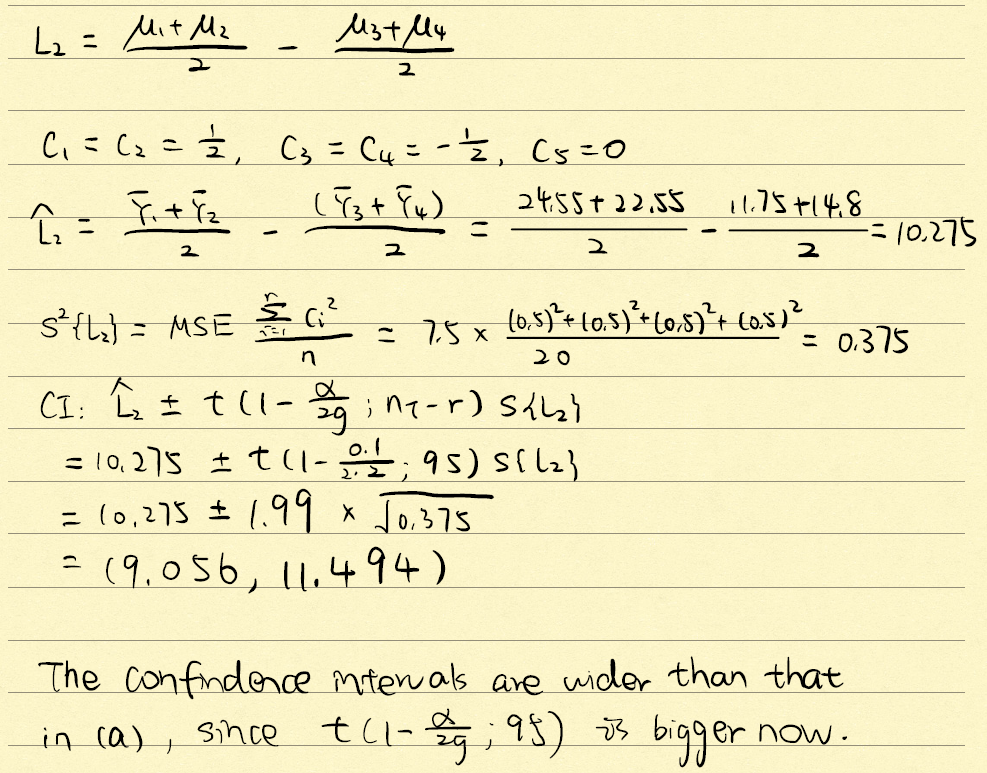 L₂ = (μ₁ + μ₂)/2 - (μ₃ + μ₄)/2
C₁ = C₂ = 1/2, C₃ = C₄ = -1/2, C₅ = 0
L̂₂ = (Ȳ₁ + Ȳ₂)/2 - (Ȳ₃ + Ȳ₄)/2 = (24.55 + 22.55)/2 - (11.75 + 14.8)/2 = 10.275
S²{L₂} = MSE (Σ_{i=1}^{r} Cᵢ²)/n = 7.5 × ((0.5)² + (0.5)² + (0.5)² + (0.5)²)/20 = 0.375
CI: L̂₂ ± t(1 - α/2g ; n_T - r) S{L₂}
= 10.275 ± t(1 - 0.1/2·2 ; 95) S{L₂}
= 10.275 ± 1.99 × √0.375
= (9.056, 11.494)
The confindence intervals are wider than that
in (a), since t(1 - α/2g ; 95) is bigger now.